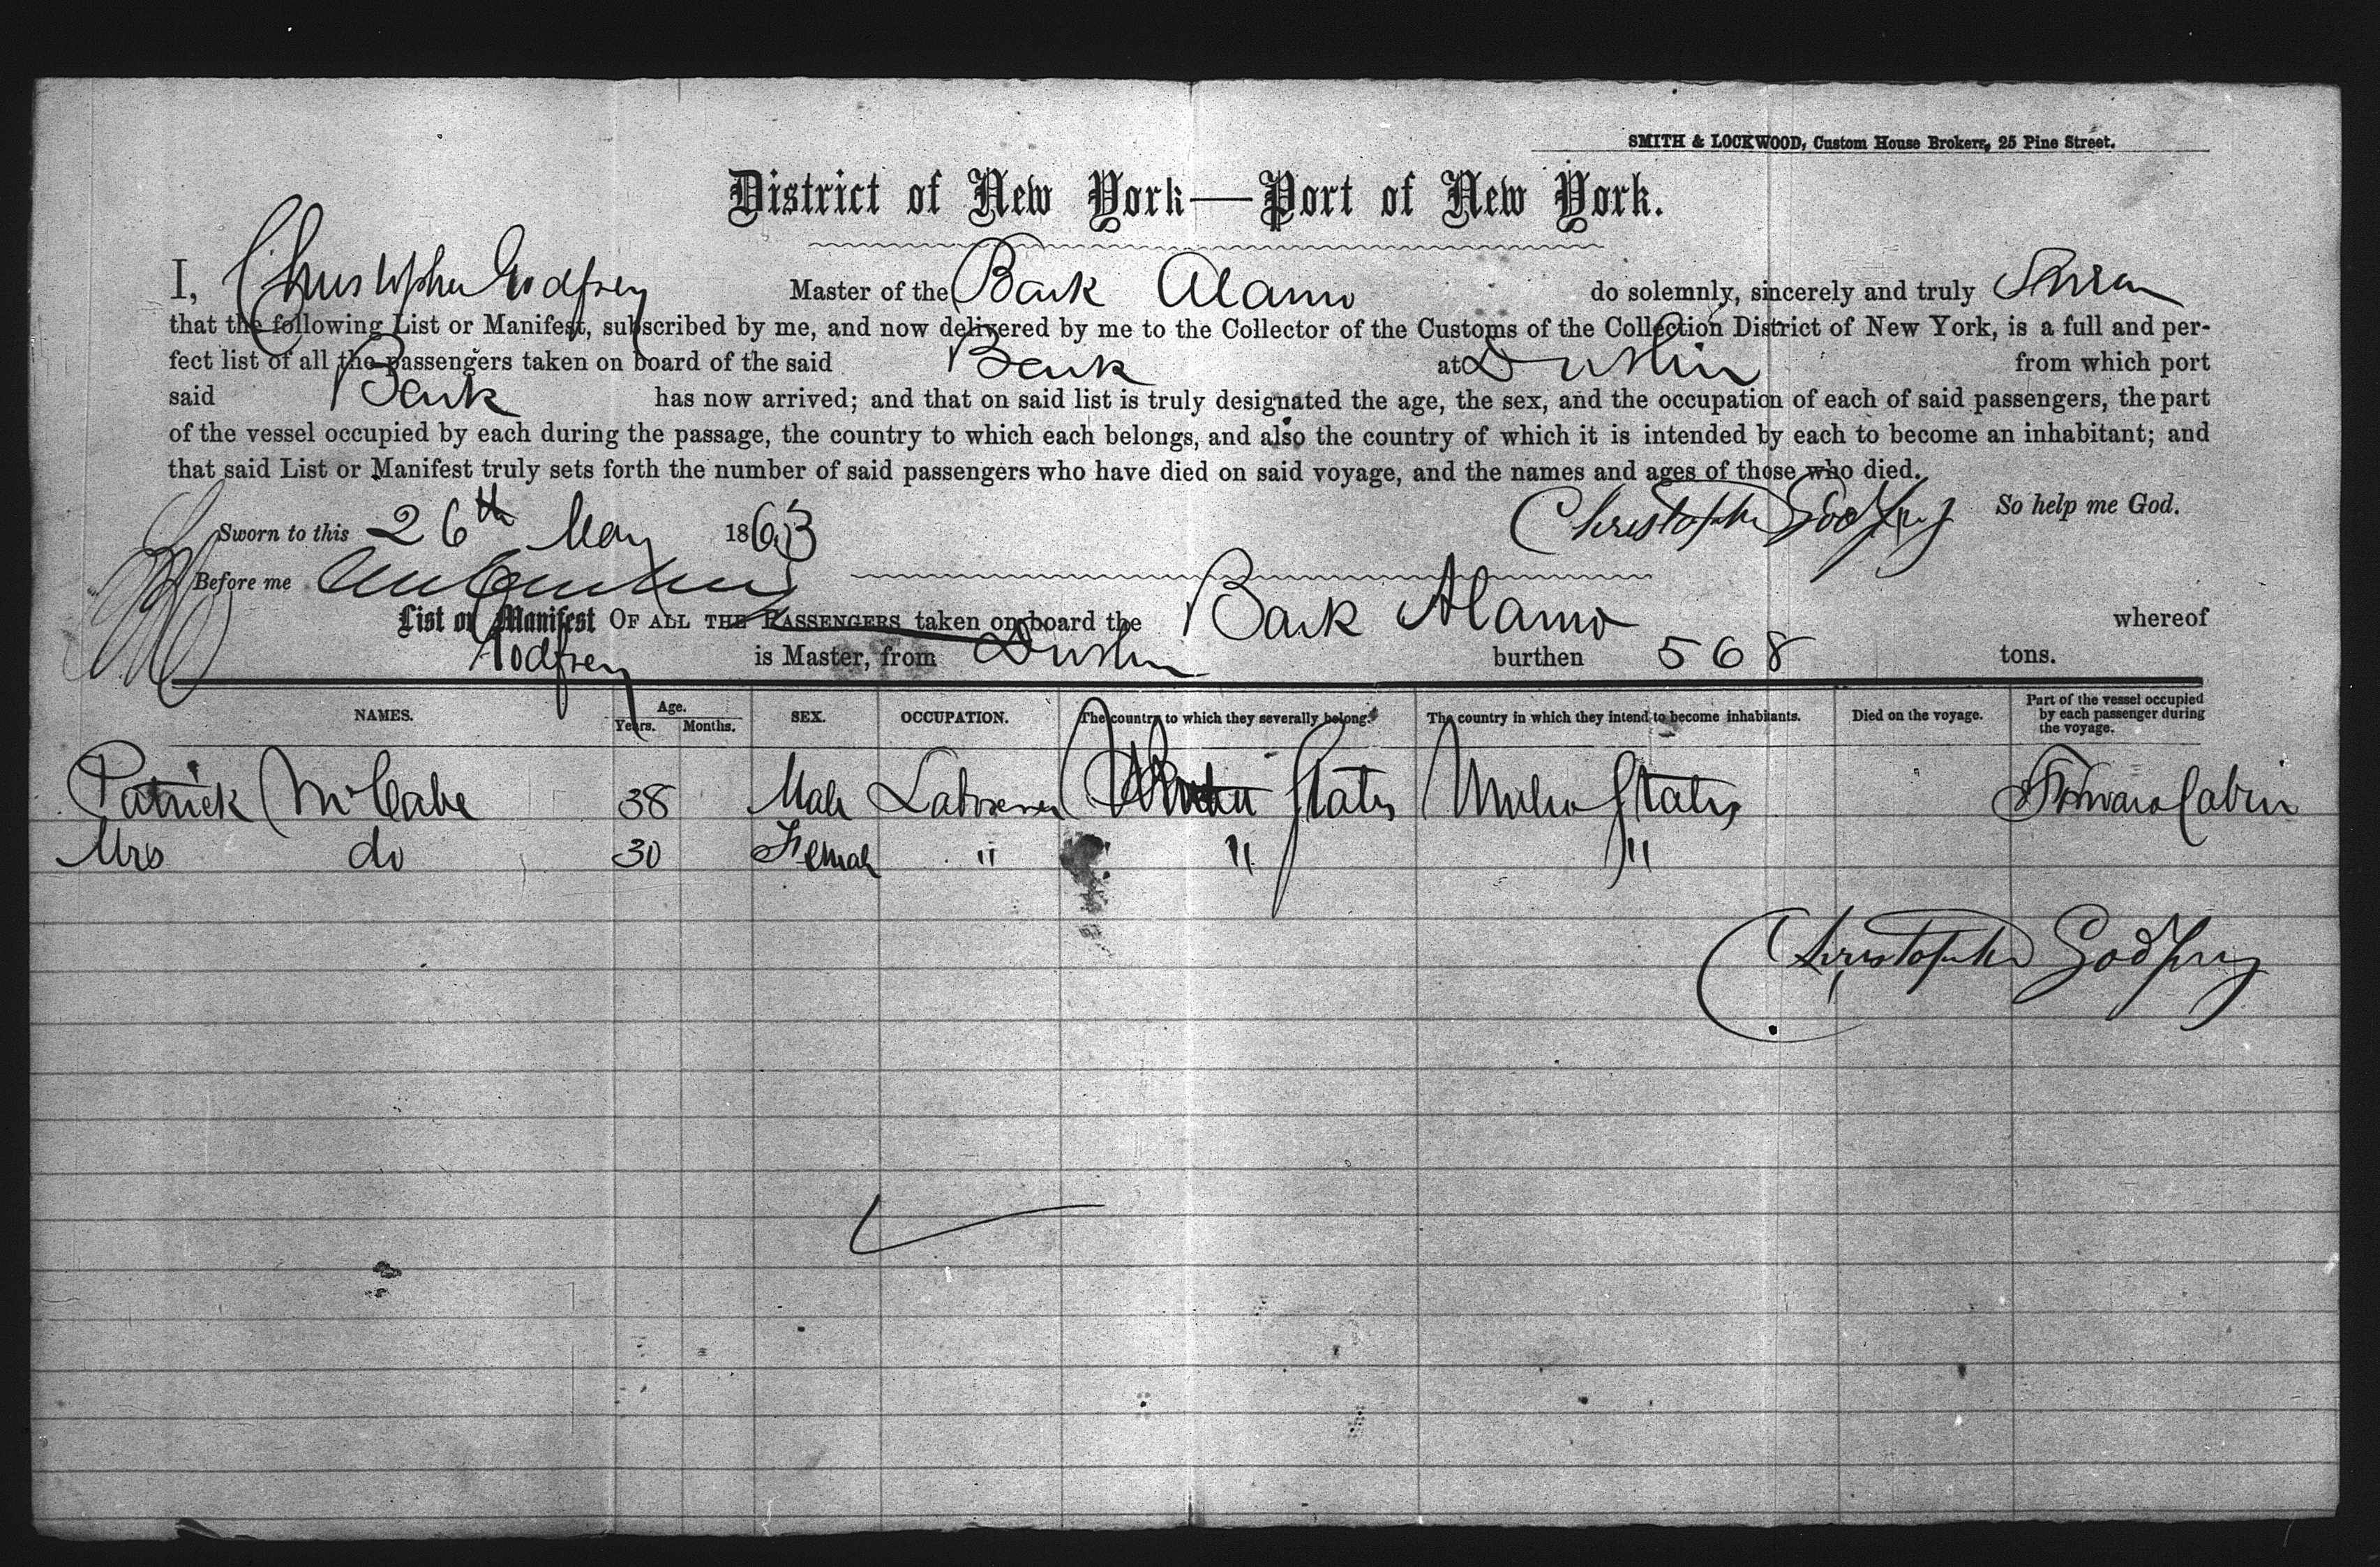 SMITH & LOCKWOOD, Custom House Brokers, 25 Pine Street.
District of New York—Port of New York.
I, Christopher Godfrey Master of the Bark Alamo do solemnly, sincerely and truly Swear
that the following List or Manifest, subscribed by me, and now delivered by me to the Collector of the Customs of the Collection District of New York, is a full and per-
fect list of all the passengers taken on board of the said Bark at Dublin from which port
said Bark has now arrived; and that on said list is truly designated the age, the sex, and the occupation of each of said passengers, the part
of the vessel occupied by each during the passage, the country to which each belongs, and also the country of which it is intended by each to become an inhabitant; and
that said List or Manifest truly sets forth the number of said passengers who have died on said voyage, and the names and ages of those who died.
Christopher Godfrey So help me God.
Sworn to this 26th May 1863
Before me
List or Manifest OF ALL THE PASSENGERS taken on board the Bark Alamo whereof
Godfrey is Master, from Dublin burthen 568 tons.
NAMES. Age. Years. Months. SEX. OCCUPATION. The country to which they severally belong. The country in which they intend to become inhabitants. Died on the voyage. Part of the vessel occupied by each passenger during the voyage.
Patrick McCabe 38 Male Laborer United States United States Forward Cabin
Mrs do 30 Female " " " "
Christopher Godfrey